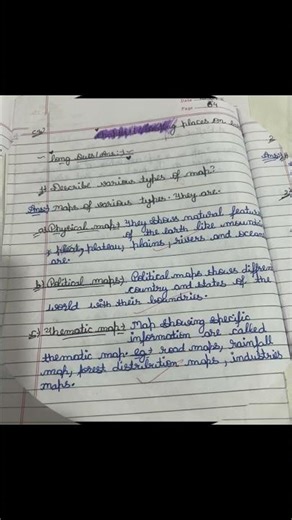 Date
Page 64
places on
→ Long Ques/Ans :-
1) Describe various types of map?
Ans:) Maps of various types. They are.
a) Physical map → They shows natural feature
of the earth like
, plateau, plains, rivers and ocean
are.
b) Political maps) Political maps shows
country and states of the
world with their boundries.
c) Thematic map → Map showing specific
information are called
thematic map. eg → road maps, rainfall
map, forest distribution maps, industries
maps.